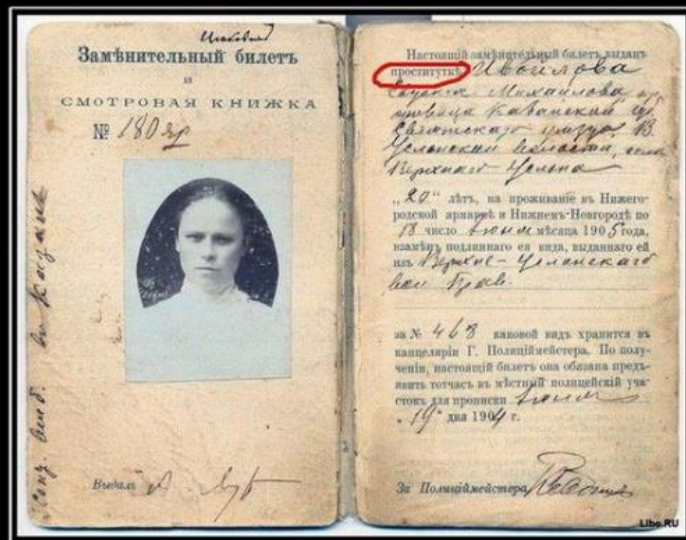 Замѣнительный билетъ
и
СМОТРОВАЯ КНИЖКА
№ 180 яр
Выдалъ А.
въ Казань
Настоящій замѣнительный билетъ выданъ
проституткѣ Ивойлова
Михайлова
Казанской губ.
Свіяжскаго уѣзда
Услонской волости, села
Верхняго Услона
„20“ лѣтъ, на проживаніе въ Нижего-
родской ярмаркѣ и Нижнемъ-Новгородѣ по
18 число Іюня мѣсяца 1905 года,
взамѣнъ подлиннаго ея вида, выданнаго ей
изъ Верхне-Услонскаго
вол. Прав.
за № 468 каковой видъ хранится въ
канцеляріи Г. Полиціймейстера. По полу-
ченіи, настоящій билетъ она обязана предъ-
явить тотчасъ въ мѣстный полицейскій уча-
стокъ для прописки Іюня
„19“ дня 1904 г.
За Полиціймейстера
Libo.RU